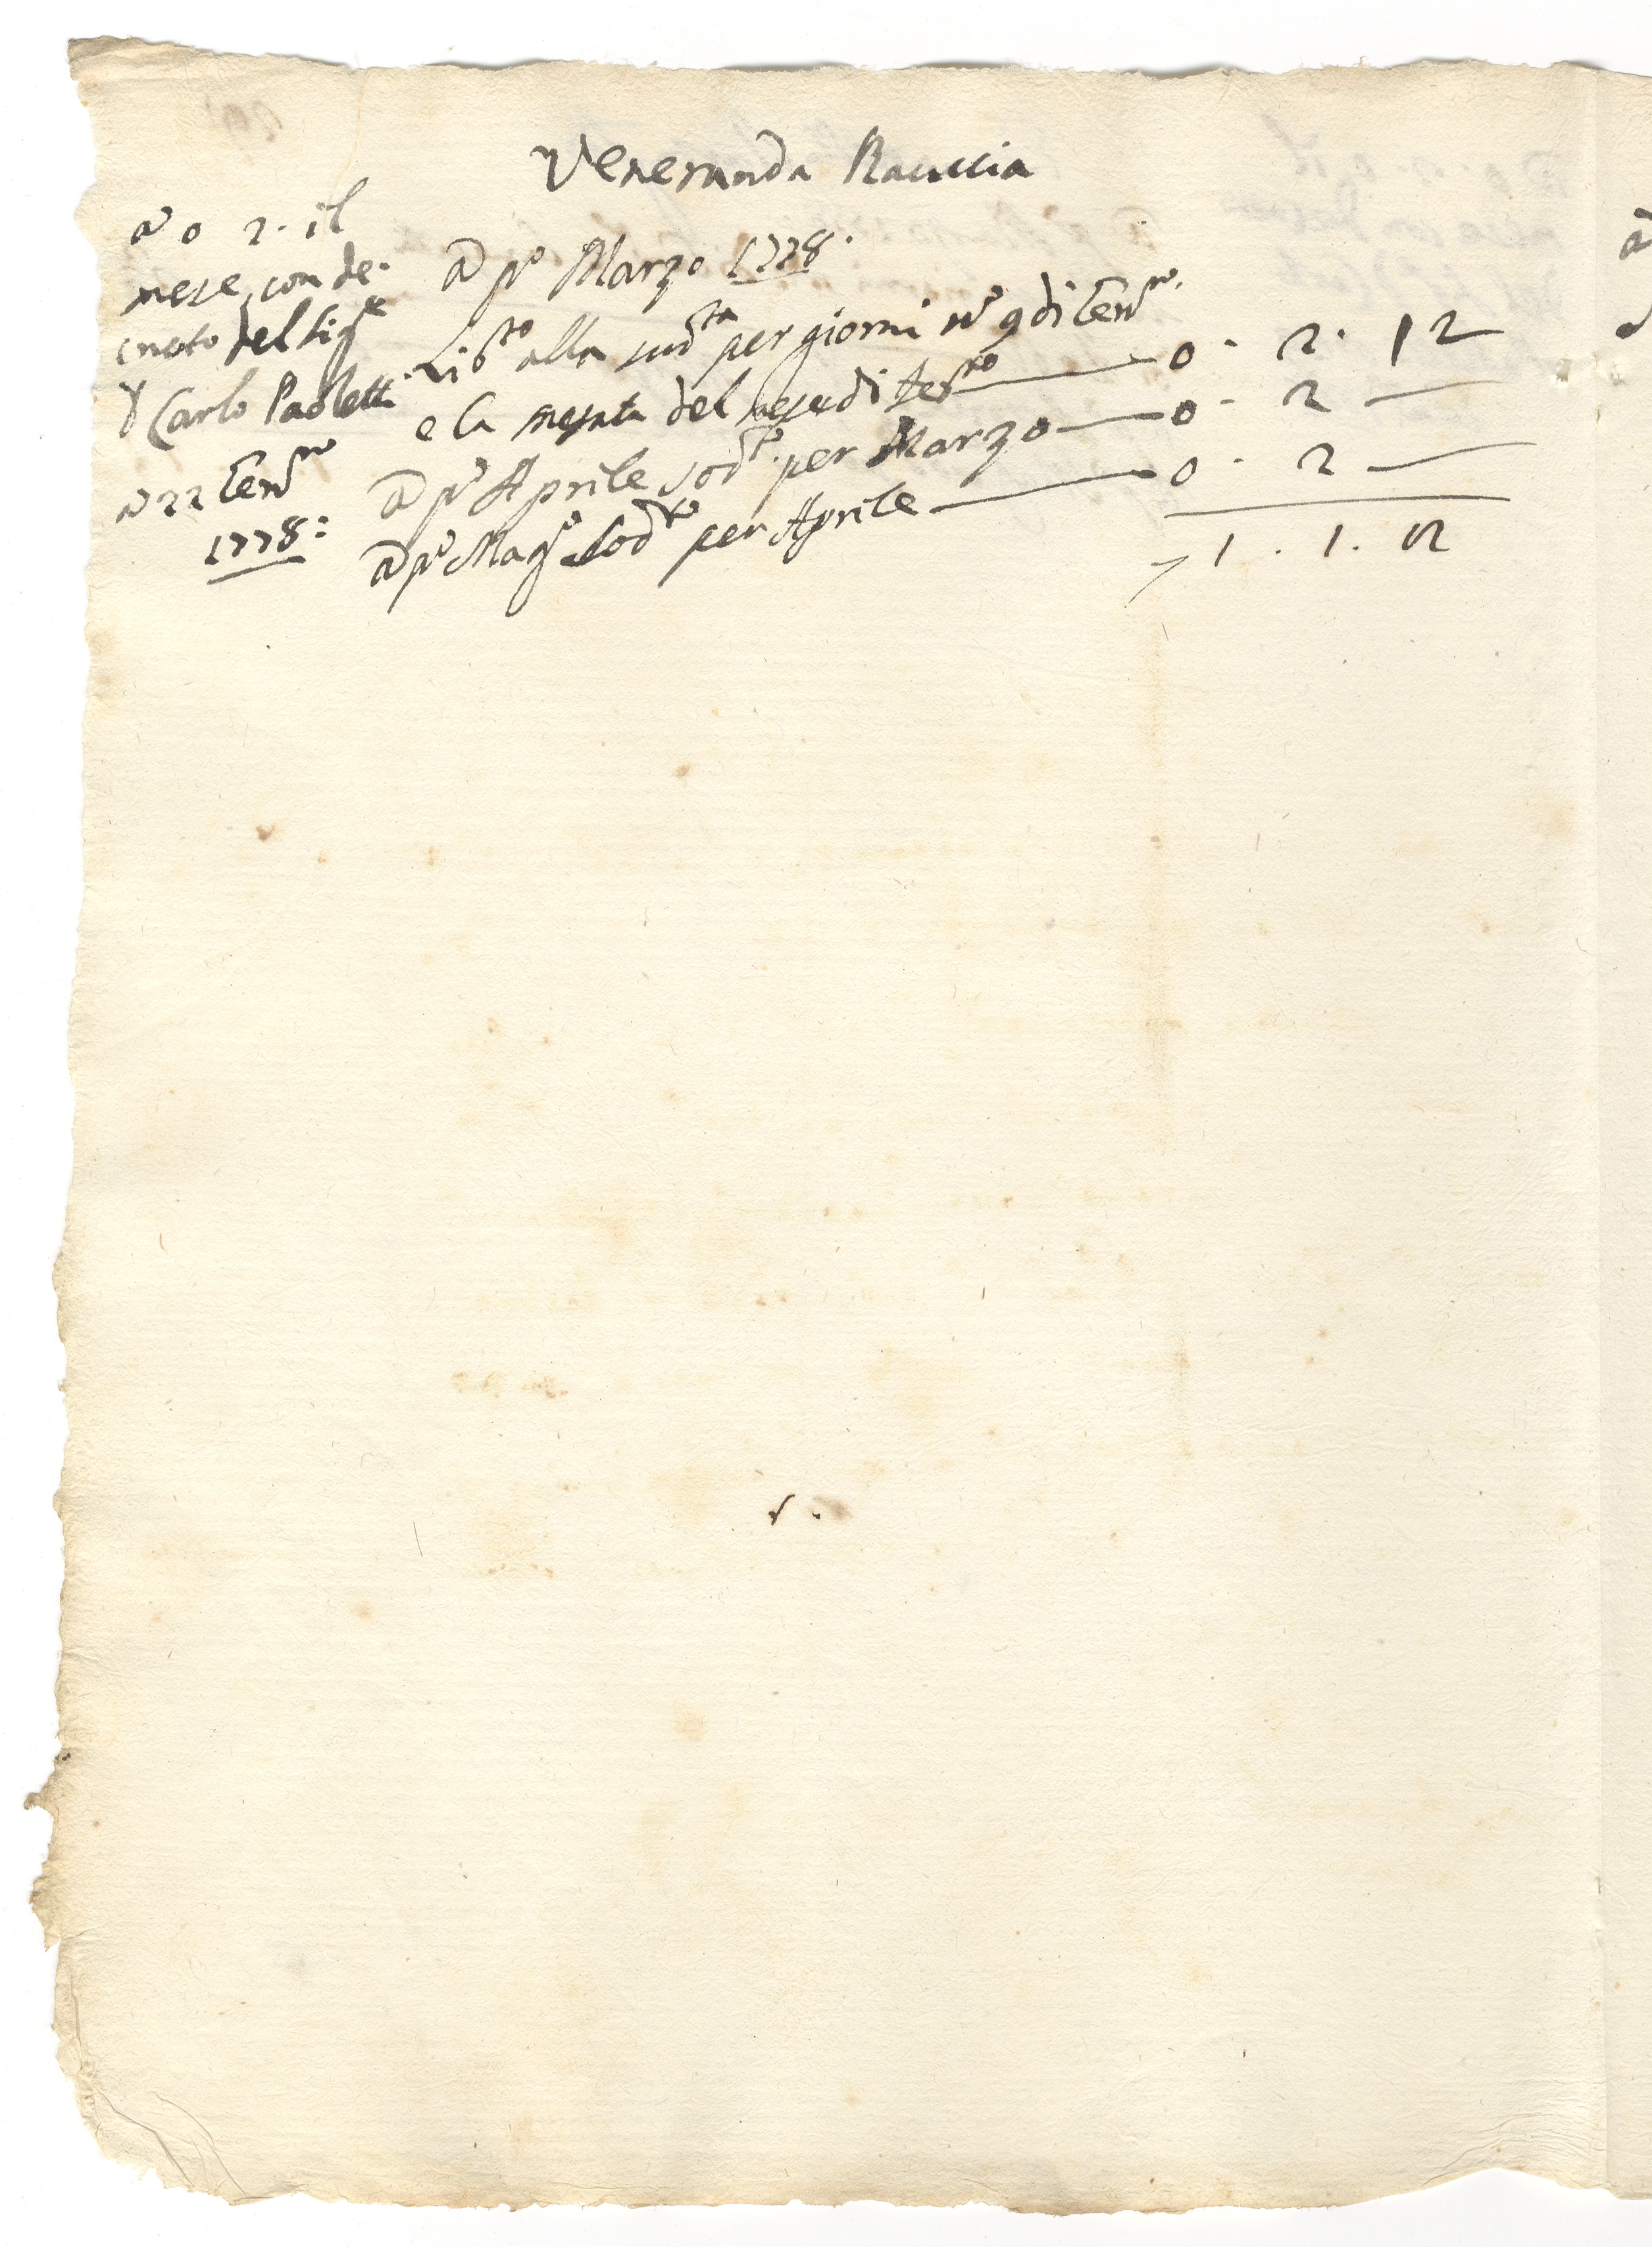 Veneranda Racuccia
a 0 2. il
mese, con de-
creto del Sig.re
D Carlo Paoletti
a 22 Genro
1778:
A po Marzo 1778.
Libto alla sudta per giorni no 9 di Genro.
e la mesata del mese di febro — 0. 2. 12
A po Aprile sodto per Marzo — 0. 2 —
A po Mago Sodto per Aprile — 0. 2 —
1. 1. 12